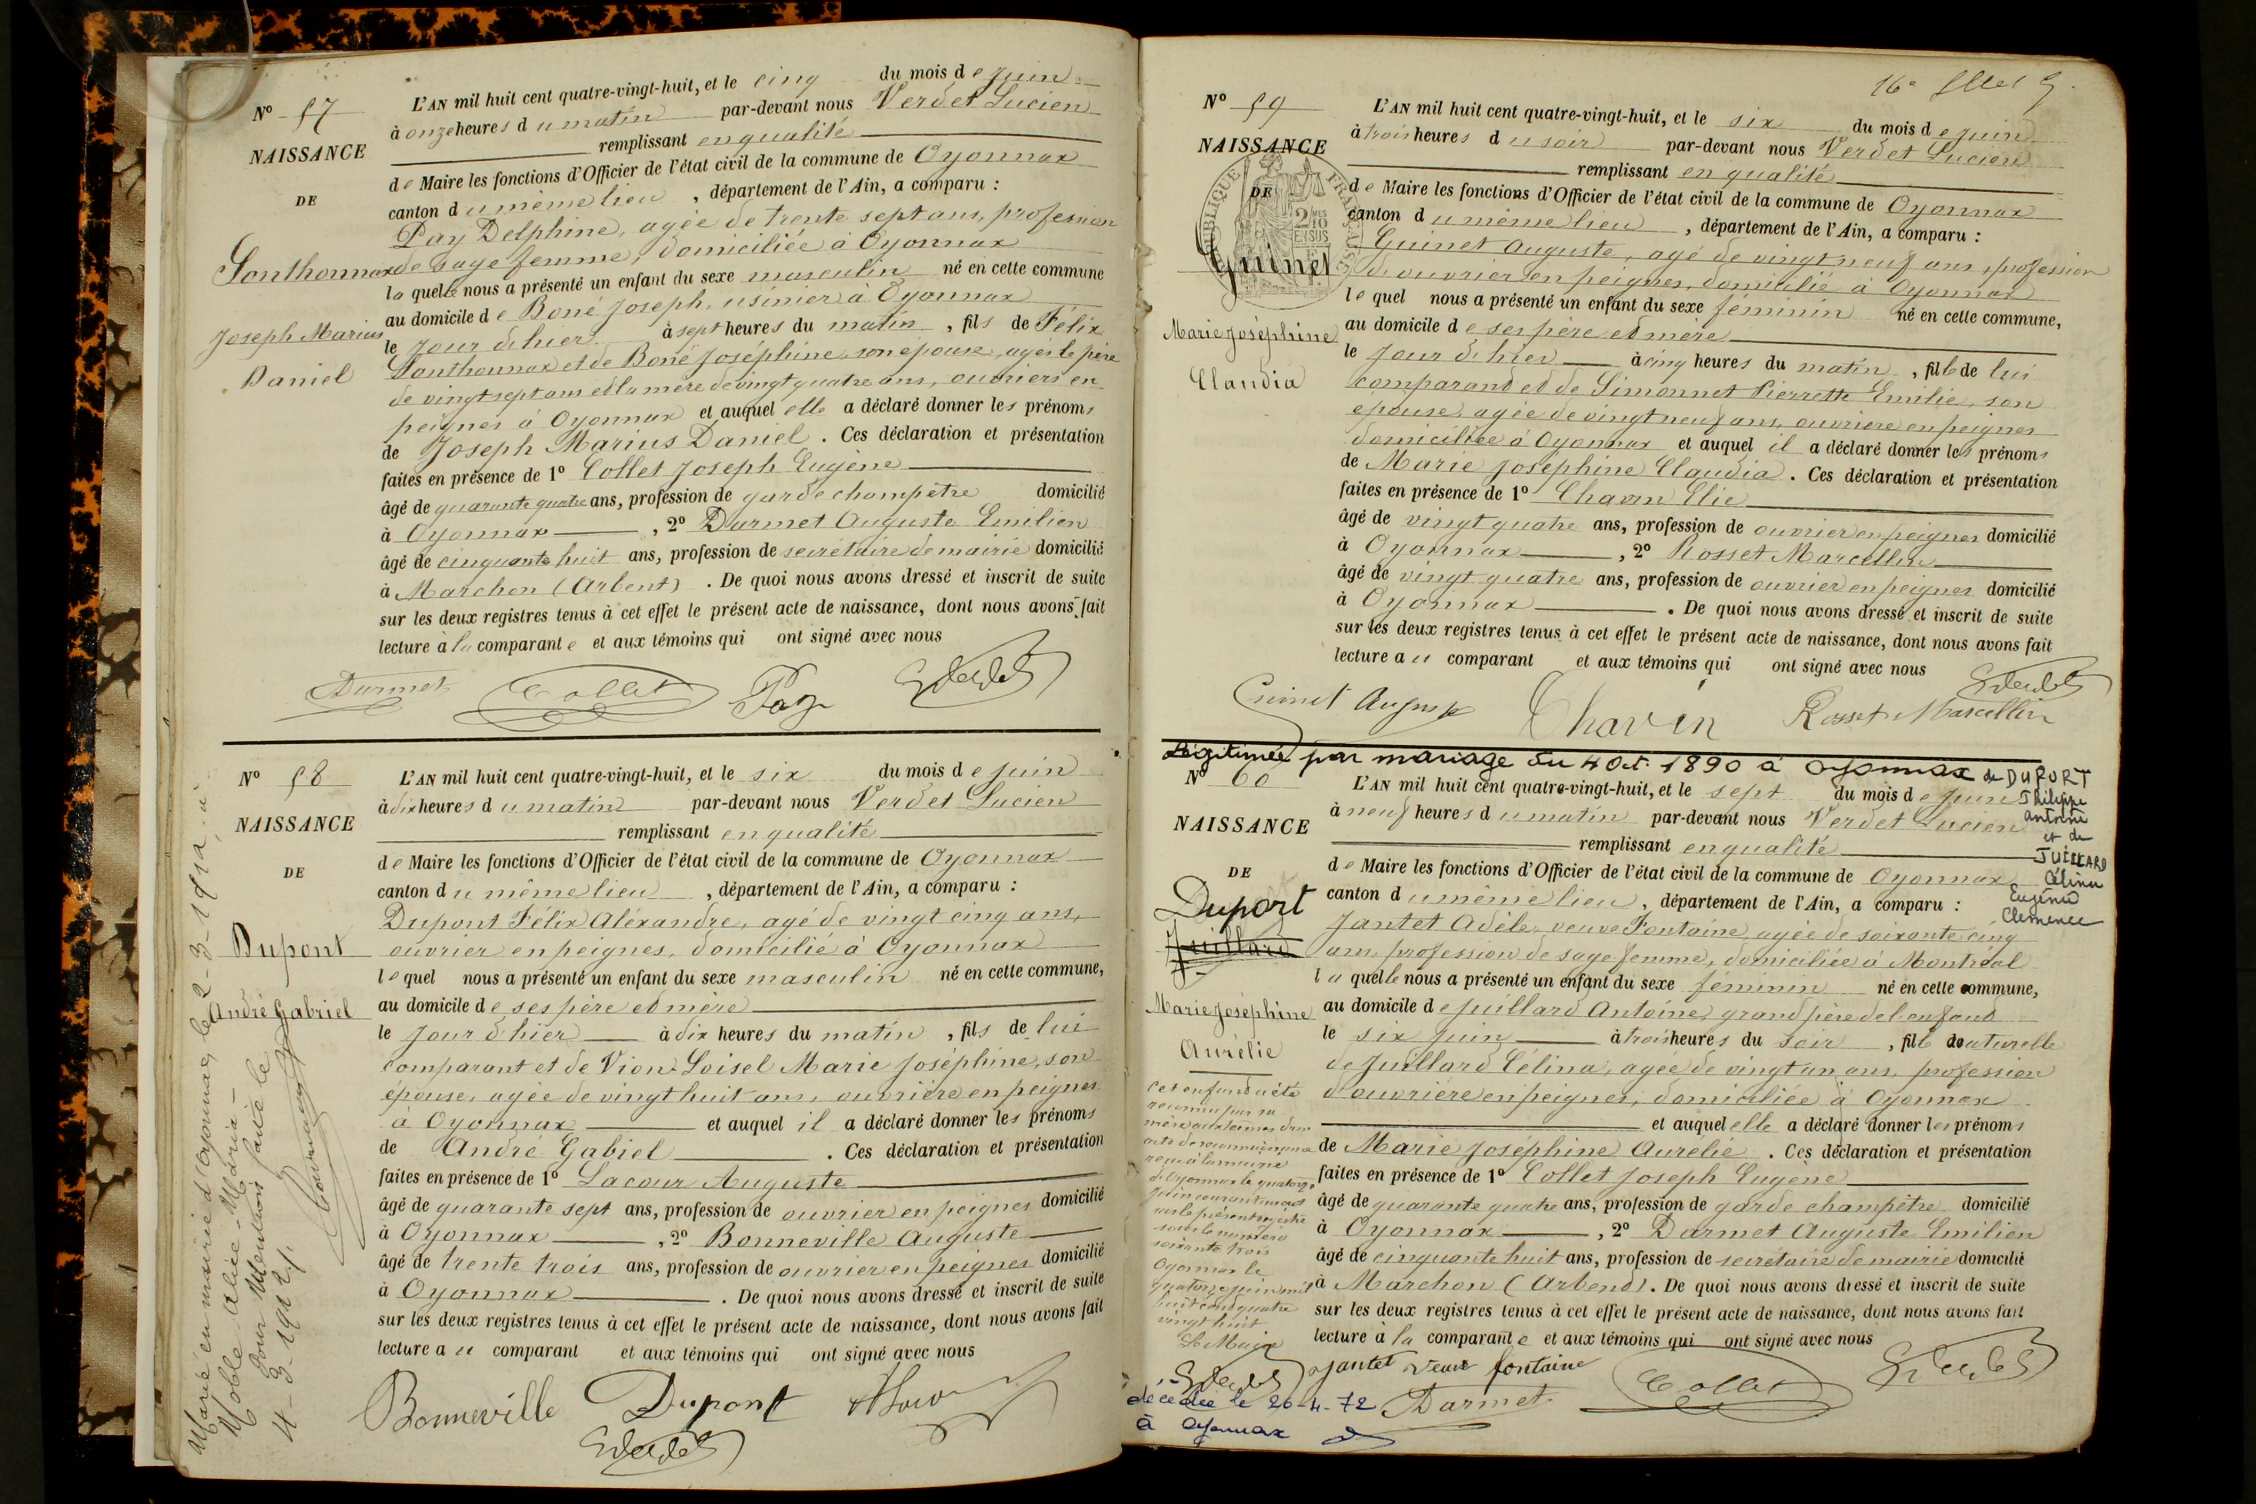 N° 57
NAISSANCE
DE
Sonthonnax
Joseph Marius
Daniel
L'AN mil huit cent quatre-vingt-huit, et le cinq du mois de Juin
à onze heures du matin par-devant nous Verdet Lucien
remplissant en qualité
de Maire les fonctions d'Officier de l'état civil de la commune de Oyonnax
canton du même lieu, département de l'Ain, a comparu :
Pay Delphine, agée de trente sept ans, profession
de sage femme, domiciliée à Oyonnax
la quelle nous a présenté un enfant du sexe masculin né en cette commune
au domicile de Boné Joseph, usinier à Oyonnax
le jour d'hier à sept heures du matin, fils de Félix
Sonthonnax et de Boné Joséphine, son épouse, agés le père
de vingt sept ans et la mère de vingt quatre ans, ouvriers en
peignes à Oyonnax et auquel elle a déclaré donner les prénoms
de Joseph Marius Daniel. Ces déclaration et présentation
faites en présence de 1° Collet Joseph Eugène
âgé de quarante quatre ans, profession de garde champêtre domicilié
à Oyonnax, 2° Darmet Auguste Emilien
âgé de cinquante huit ans, profession de secrétaire de mairie domicilié
à Marchon (Arbent). De quoi nous avons dressé et inscrit de suite
sur les deux registres tenus à cet effet le présent acte de naissance, dont nous avons fait
lecture à la comparante et aux témoins qui ont signé avec nous
Darmet Collet Pay
N° 58
NAISSANCE
DE
Dupont
André Gabriel
Marié en mairie d'Oyonnax le 2-3-1912 à
Noble Alice-Maria-
Pour Mention faite le
4-3-1912.
L'AN mil huit cent quatre-vingt-huit, et le six du mois de Juin
à dix heures du matin par-devant nous Verdet Lucien
remplissant en qualité
de Maire les fonctions d'Officier de l'état civil de la commune de Oyonnax
canton du même lieu, département de l'Ain, a comparu :
Dupont Félix Aléxandre, agé de vingt cinq ans,
ouvrier en peignes, domicilié à Oyonnax
le quel nous a présenté un enfant du sexe masculin né en cette commune,
au domicile de ses père et mère
le jour d'hier à dix heures du matin, fils de lui
comparant et de Vion-Loisel Marie Joséphine, son
épouse, agée de vingt huit ans, ouvrière en peignes
à Oyonnax et auquel il a déclaré donner les prénoms
de André Gabiel. Ces déclaration et présentation
faites en présence de 1° Lacour Auguste
âgé de quarante sept ans, profession de ouvrier en peignes domicilié
à Oyonnax, 2° Bonneville Auguste
âgé de trente trois ans, profession de ouvrier en peignes domicilié
à Oyonnax. De quoi nous avons dressé et inscrit de suite
sur les deux registres tenus à cet effet le présent acte de naissance, dont nous avons fait
lecture au comparant et aux témoins qui ont signé avec nous
Bonneville Dupont
16e
N° 59
NAISSANCE
DE
Guinet
Marie Joséphine
Claudia
L'AN mil huit cent quatre-vingt-huit, et le six du mois de Juin
à trois heures du soir par-devant nous Verdet Lucien
remplissant en qualité
de Maire les fonctions d'Officier de l'état civil de la commune de Oyonnax
canton du même lieu, département de l'Ain, a comparu :
Guinet Auguste, agé de vingt neuf ans, profession
d'ouvrier en peignes, domicilié à Oyonnax
le quel nous a présenté un enfant du sexe féminin né en cette commune,
au domicile de ses père et mère
le jour d'hier à cinq heures du matin, fille de lui
comparant et de Simonnet Pierrette Emilie, son
épouse, agée de vingt neuf ans, ouvrière en peignes
domiciliée à Oyonnax et auquel il a déclaré donner les prénoms
de Marie Joséphine Claudia. Ces déclaration et présentation
faites en présence de 1° Chavin Elie
âgé de vingt quatre ans, profession de ouvrier en peignes domicilié
à Oyonnax, 2° Rosset Marcellin
âgé de vingt quatre ans, profession de ouvrier en peignes domicilié
à Oyonnax. De quoi nous avons dressé et inscrit de suite
sur les deux registres tenus à cet effet le présent acte de naissance, dont nous avons fait
lecture au comparant et aux témoins qui ont signé avec nous
Guinet Auguste Chavin Rosset Marcellin
Légitimée par mariage du 4 Oct. 1890 à Oyonnax de DUPORT
Philippe
Antoine
et de
JUILLARD
Célina
Eugénie
Clémence
N° 60
NAISSANCE
DE
Duport
Juillard
Marie Joséphine
Aurélie
Cet enfant a été
reconnu par sa
mère aux termes d'un
acte de reconnaissance
reçu à la mairie
d'Oyonnax le quatorze
juin courant inscrit
sur le présent registre
sous le numéro
soixante trois
Oyonnax le
quatorze juin mil
huit cent quatre
vingt huit
Le Maire
décédée le 26-4-72
à Oyonnax
L'AN mil huit cent quatre-vingt-huit, et le sept du mois de Juin
à neuf heures du matin par-devant nous Verdet Lucien
remplissant en qualité
de Maire les fonctions d'Officier de l'état civil de la commune de Oyonnax
canton du même lieu, département de l'Ain, a comparu :
Jantet Adèle, veuve Fontaine, agée de soixante cinq
ans, profession de sage femme, domiciliée à Montréal
la quelle nous a présenté un enfant du sexe féminin né en cette commune,
au domicile de Juillard Antoine, grand père de l'enfant
le six juin à trois heures du soir, fille naturelle
de Juillard Célina, agée de vingt un ans, profession
d'ouvrière en peignes, domiciliée à Oyonnax
et auquel elle a déclaré donner les prénoms
de Marie Joséphine Aurélie. Ces déclaration et présentation
faites en présence de 1° Collet Joseph Eugène
âgé de quarante quatre ans, profession de garde champêtre domicilié
à Oyonnax, 2° Darmet Auguste Emilien
âgé de cinquante huit ans, profession de secrétaire de mairie domicilié
à Marchon (Arbent). De quoi nous avons dressé et inscrit de suite
sur les deux registres tenus à cet effet le présent acte de naissance, dont nous avons fait
lecture à la comparante et aux témoins qui ont signé avec nous
jantet veuve fontaine Collet
Darmet